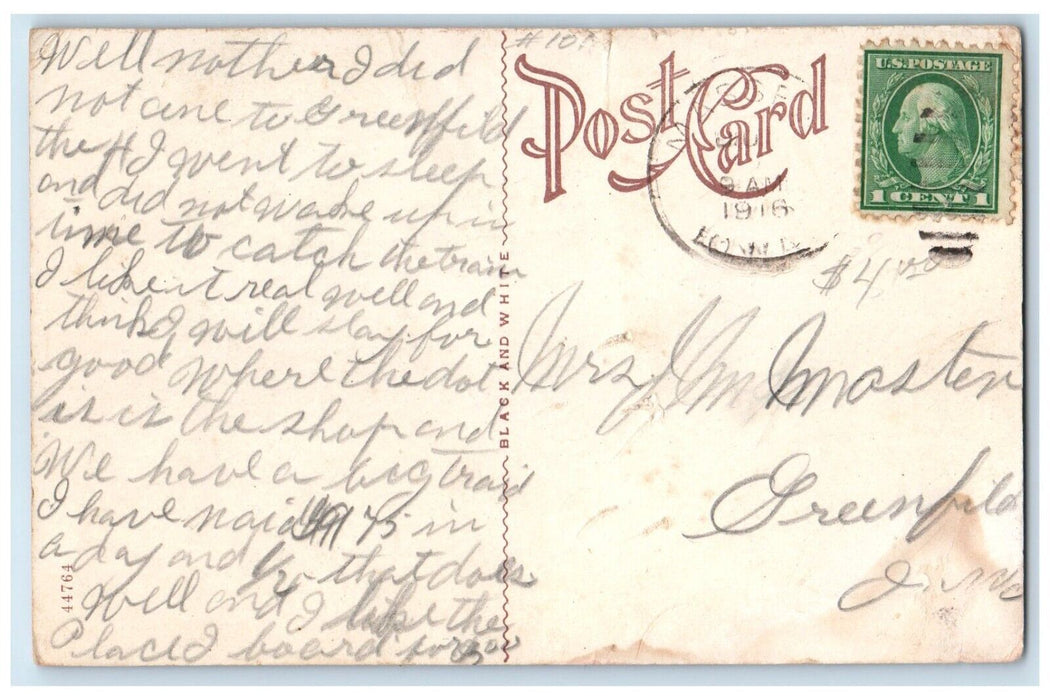 Well mother I did
not cme to Greenfild
the H I went to sleep
and did not wake up in
time to catch the train
I like it real well and
think I will stay for
good where the dot
is is the shop and
We have a big traid
I have maid 175 in
a day and that does
Well and I like the
Place I board for
44764
BLACK AND WHITE
Post Card
9 AM
1916
IOWA
U.S. POSTAGE
1 CENT 1
$4.00
Mrs Jm Masten
Greenfild
Iowa